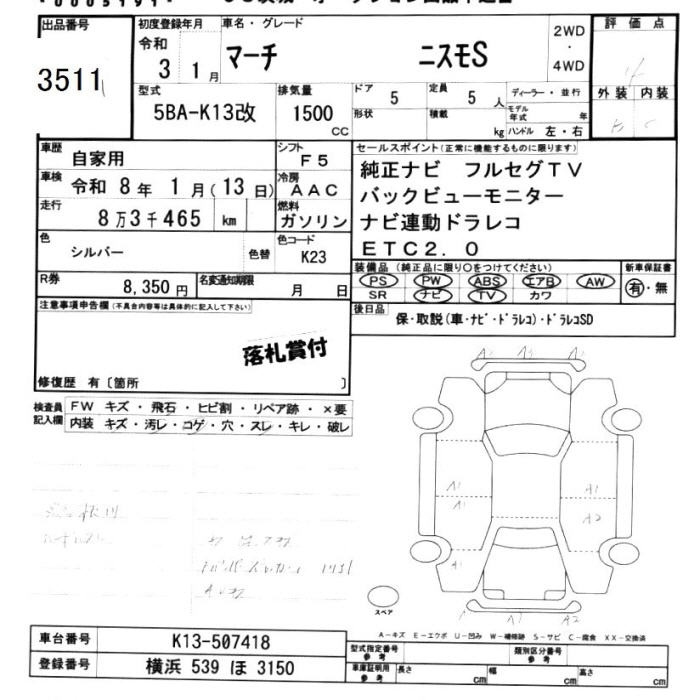 出品番号
3511
初度登録年月
令和
3 1月
車名・グレード
マーチ ニスモS
2WD
・
4WD
評価点
4
外装 内装
型式
5BA-K13改
排気量
1500
CC
ドア
5
定員
5 人
形状
積載
kg
ディーラー・並行
モデル年式 年
ハンドル 左・右
車歴
自家用
シフト
F5
車検
令和 8年 1月(13日)
冷房
AAC
走行
8万3千465 km
燃料
ガソリン
色
シルバー
色替
色コード
K23
R券
8,350円
名変通知期限
月 日
セールスポイント(正常に機能するものに限ります)
純正ナビ フルセグTV
バックビューモニター
ナビ連動ドラレコ
ETC2.0
装備品(純正品に限り○をつけてください)
PS PW ABS エアB AW
SR ナビ TV カワ
新車保証書
有・無
後日品
保・取説(車・ナビ・ドラレコ)・ドラレコSD
注意事項申告欄(不具合内容等は具体的に記入して下さい)
落札賞付
修復歴 有〔箇所 〕
検査員記入欄
FW キズ・飛石・ヒビ割・リペア跡・×要
内装 キズ・汚レ・コゲ・穴・スレ・キレ・破レ
A1
A1
A1
A1
A1
A2
A1
A1
A2
スペア
A-キズ E-エクボ U-凹み W-補修跡 S-サビ C-腐食 XX-交換済
車台番号
K13-507418
登録番号
横浜 539 ほ 3150
型式指定番号
参考
類別区分番号
参考
車庫証明用
参考
長さ cm
幅 cm
高さ cm